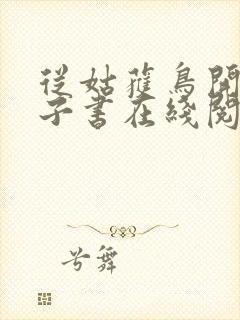 從姑獲鳥開
子書在綫閱
兮舞